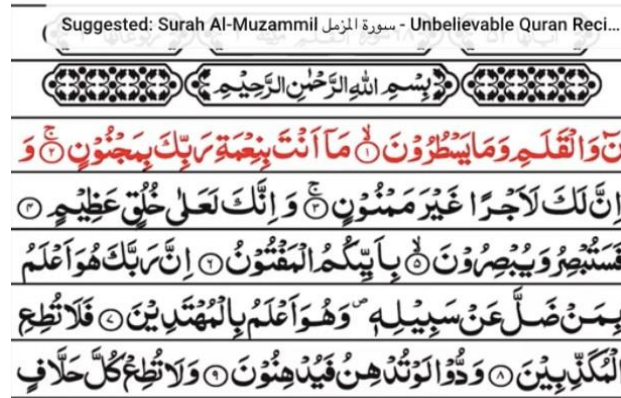 Suggested: Surah Al-Muzammil سورة المزمل - Unbelievable Quran Reci...
بِسْمِ اللهِ الرَّحْمٰنِ الرَّحِيْمِ
نٓ وَالْقَلَمِ وَمَا يَسْطُرُوْنَ ۙ‏﴿۱﴾ مَاۤ اَنْتَ بِنِعْمَةِ رَبِّكَ بِمَجْنُوْنٍ ۚ‏﴿۲﴾ وَ
اِنَّ لَكَ لَاَجْرًا غَيْرَ مَمْنُوْنٍ ۚ‏﴿۳﴾ وَ اِنَّكَ لَعَلٰى خُلُقٍ عَظِيْمٍ ﴿۴﴾
فَسَتُبْصِرُ وَ يُبْصِرُوْنَ ۙ‏﴿۵﴾ بِاَيِّكُمُ الْمَفْتُوْنُ ﴿۶﴾ اِنَّ رَبَّكَ هُوَ اَعْلَمُ
بِمَنْ ضَلَّ عَنْ سَبِيْلِهٖ ۪ وَ هُوَ اَعْلَمُ بِالْمُهْتَدِيْنَ ﴿۷﴾ فَلَا تُطِعِ
الْمُكَذِّبِيْنَ ﴿۸﴾ وَدُّوْا لَوْ تُدْهِنُ فَيُدْهِنُوْنَ ﴿۹﴾ وَلَا تُطِعْ كُلَّ حَلَّافٍ